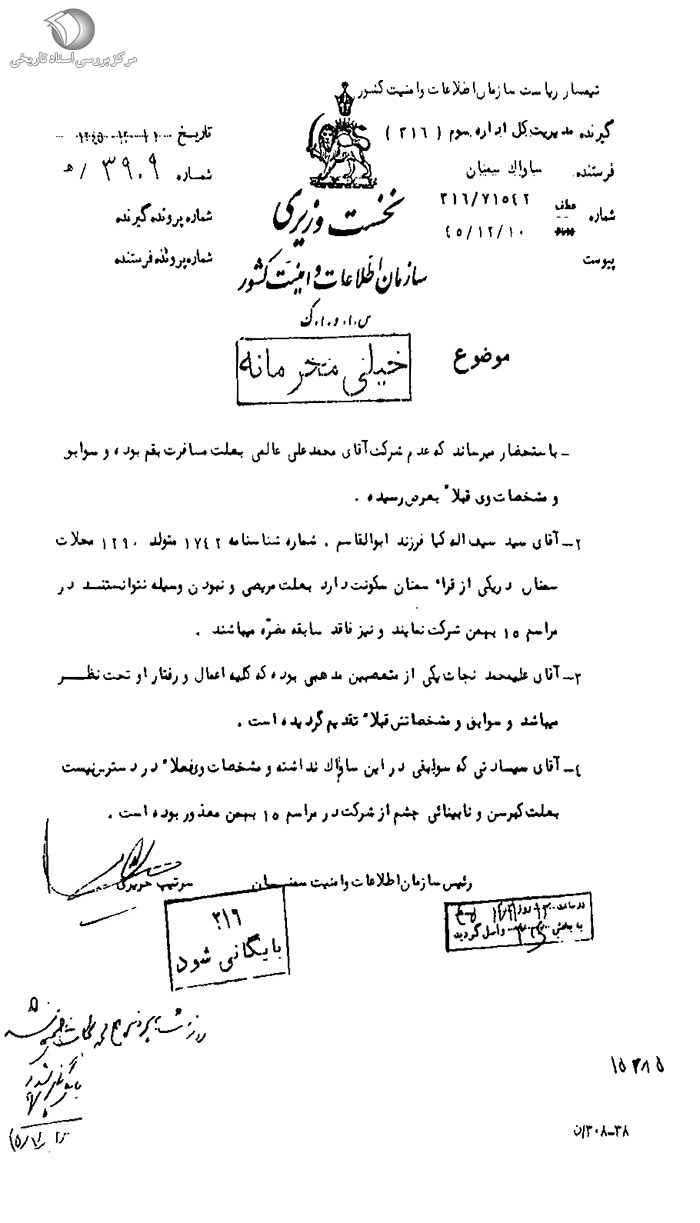 مرکز بررسی اسناد تاریخی
تیمسار ریاست سازمان اطلاعات و امنیت کشور
گیرنده مدیریت کل اداره سوم ( ۳۱۶ )
فرستنده ساواک سمنان
شماره عطف ۳۱۶/۷۱۵۴۲
۴۵/۱۲/۱۰
پیوست
تاریخ
شماره ۳۹۰۹ / ه
شماره پرونده گیرنده
شماره پرونده فرستنده
نخست وزیری
سازمان اطلاعات و امنیت کشور
س.ا.و.ا.ک
موضوع
خیلی محرمانه
- باستحضار میرساند که عدم شرکت آقای محمدعلی عالمی بعلت مسافرت بقم بوده و سوابق
و مشخصات وی قبلاً بعرض رسیده .
۲- آقای سید سیف اله کیا فرزند ابوالقاسم . شماره شناسنامه ۱۷۴۲ متولد ۱۲۹۰ محلات
سمنان دریکی از قراء سمنان سکونت دارد بعلت مریضی و نبودن وسیله نتوانستند در
مراسم ۱۵ بهمن شرکت نمایند و نیز فاقد سابقه مضره میباشند .
۳- آقای علیمحمد نجات یکی از متعصبین مذهبی بوده که کلیه اعمال و رفتار او تحت نظر
میباشد و سوابق و مشخصاتش قبلاً تقدیم گردیده است .
۴- آقای سیادتی که سوابقی در این ساواک نداشته و مشخصات وی فعلاً در دسترس نیست
بعلت کبر سن و نابینائی چشم از شرکت در مراسم ۱۵ بهمن معذور بوده است .
رئیس سازمان اطلاعات و امنیت سمنان سرتیپ
در ساعت روز
به بخش واصل گردید
۳۱۶
بایگانی شود
بایگانی شود
۱۵۳۸۵
۳۰۸-۳۸/ن